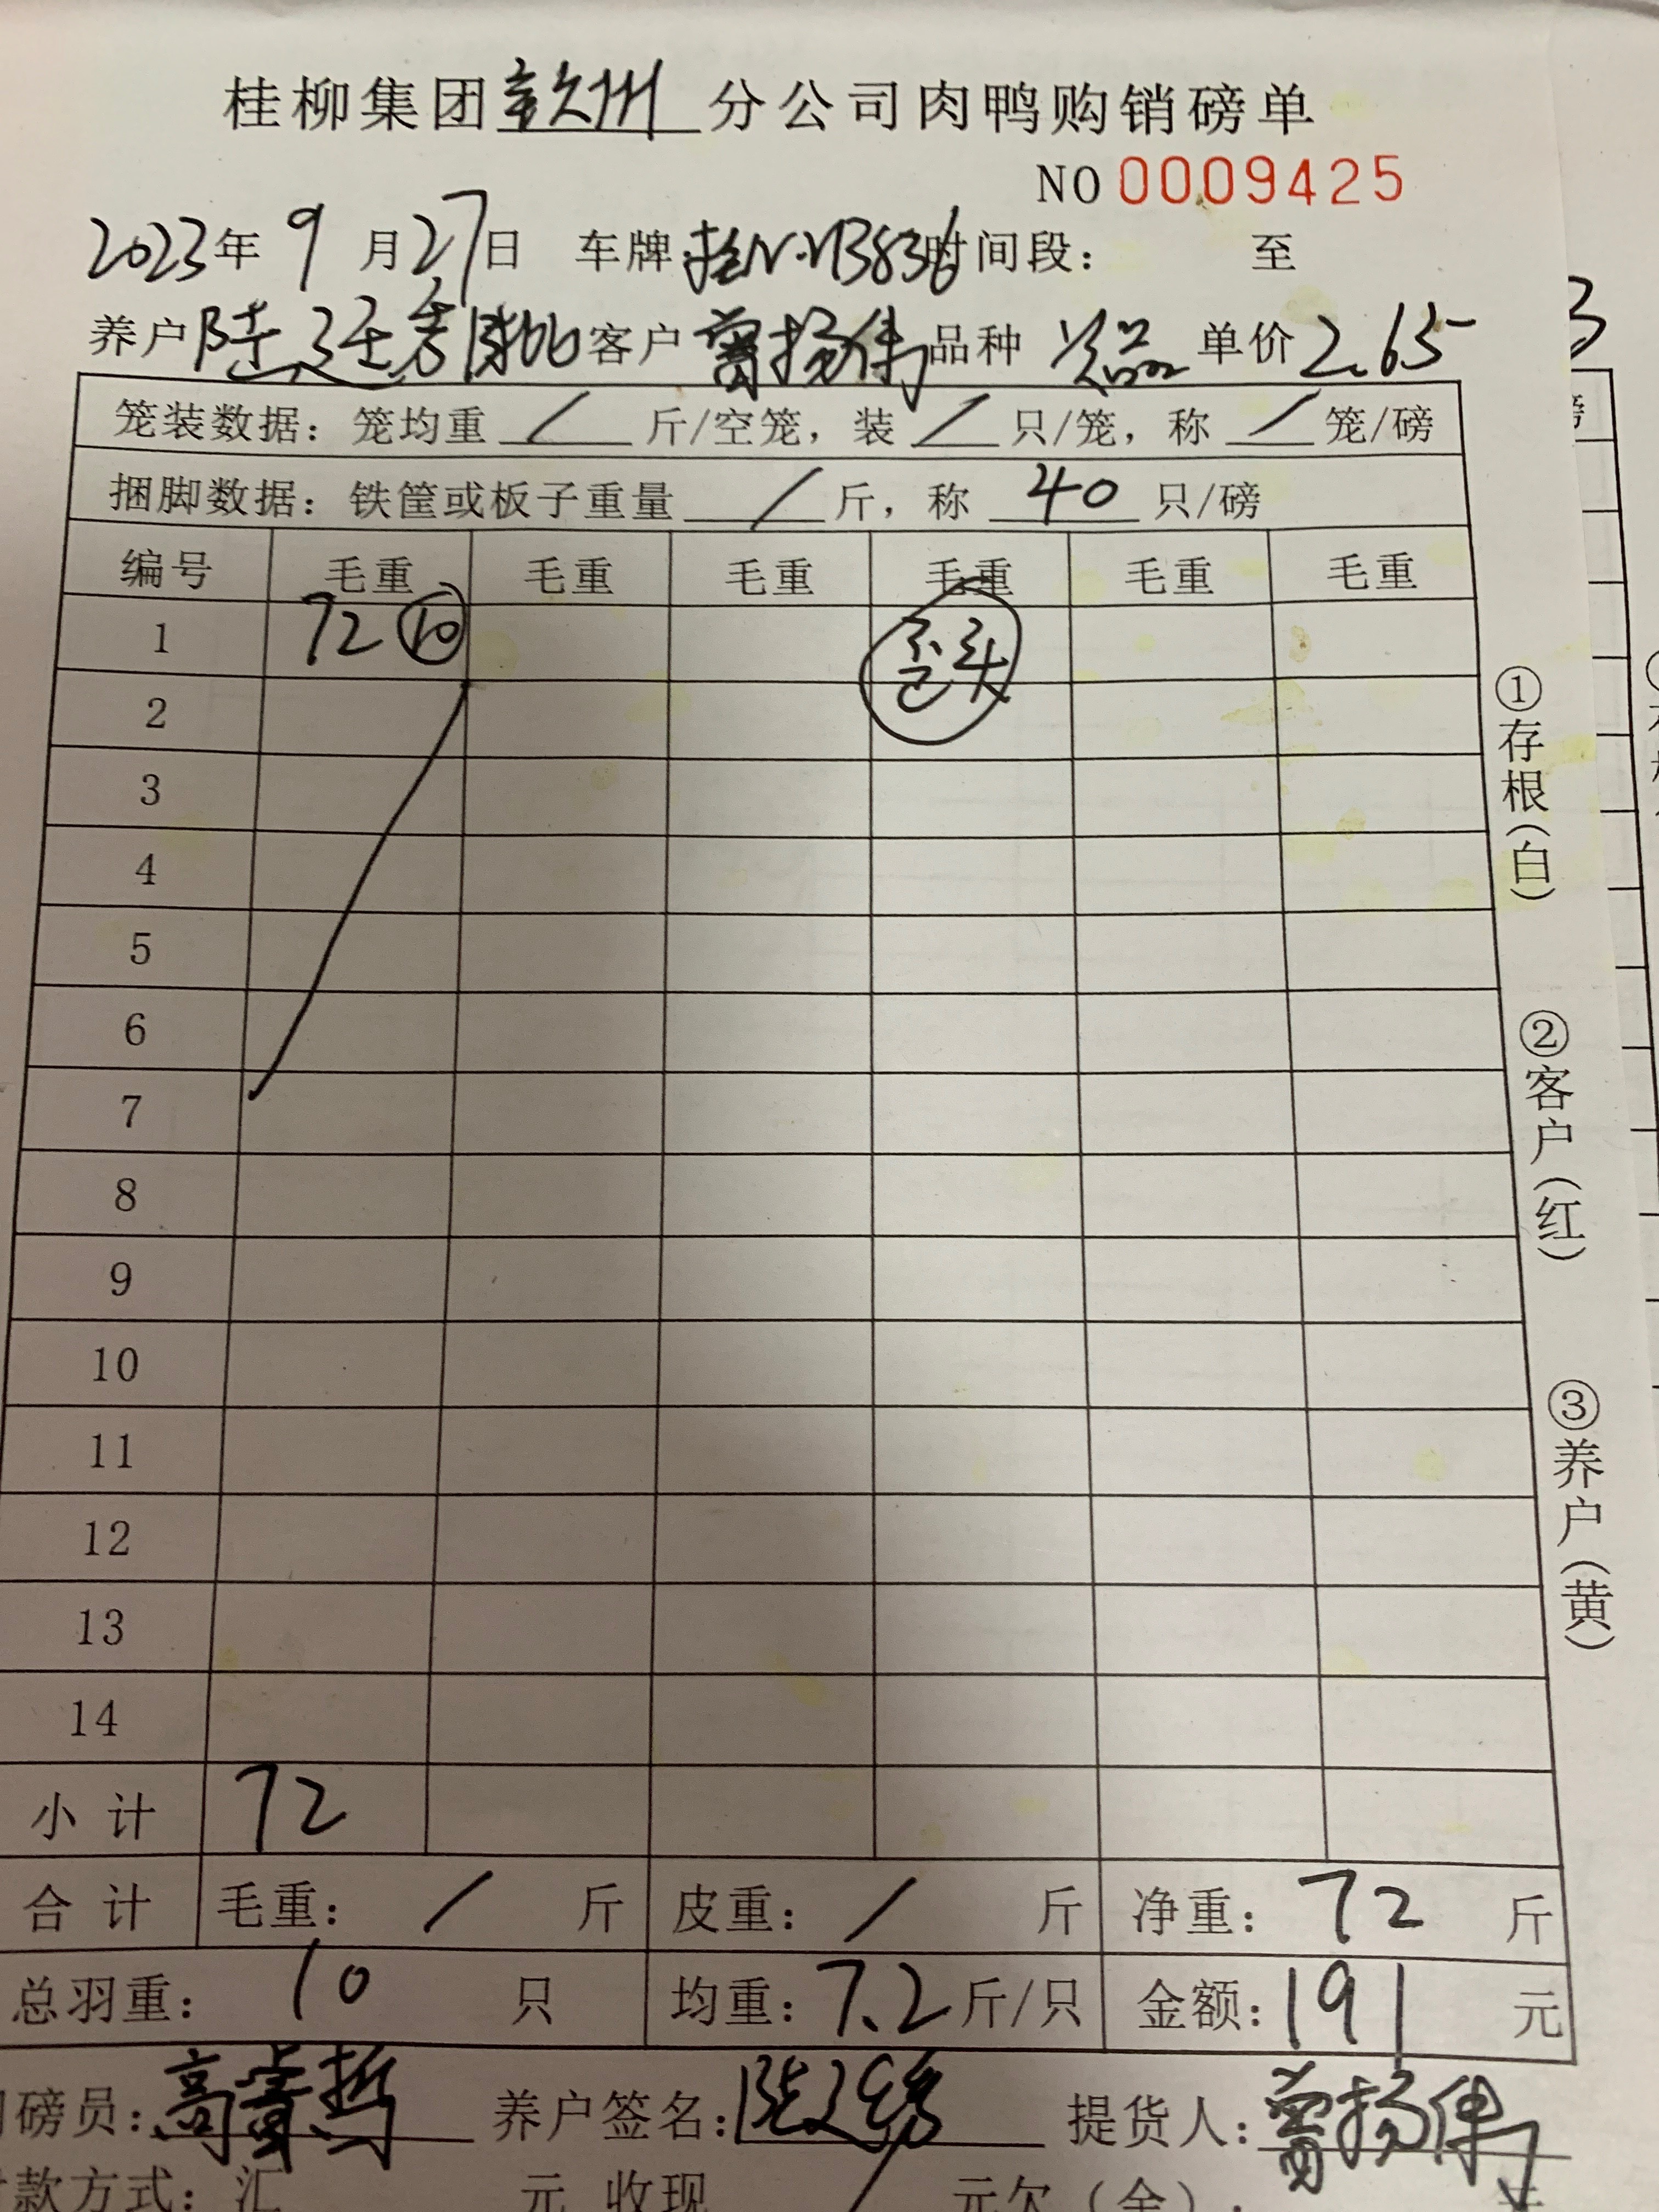 桂柳集团钦州分公司肉鸭购销磅单
NO 0009425
2023年 9 月 27 日 车牌: 时间段: 至
养户 陆廷秀 客户 曾扬伟 品种 单价 2.65
笼装数据: 笼均重 / 斤/空笼, 装 / 只/笼, 称 / 笼/磅
捆脚数据: 铁筐或板子重量 / 斤, 称 40 只/磅
编号 毛重 毛重 毛重 毛重 毛重 毛重
1 72 ⑩ 歪头
2
3
4
5
6
7
8
9
10
11
12
13
14
小计 72
合计 毛重: / 斤 皮重: / 斤 净重: 72 斤
总羽重: 10 只 均重: 7.2 斤/只 金额: 191 元
磅员: 养户签名: 提货人: 曾扬伟
款方式: 汇 元 收现 / 元欠(余):
①存根(白)
②客户(红)
③养户(黄)